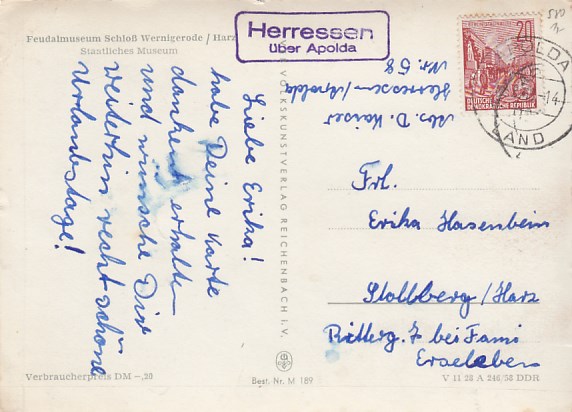 Feudalmuseum Schloß Wernigerode / Harz
Staatliches Museum
Herressen
über Apolda
20
DEUTSCHE
DEMOKRATISCHE REPUBLIK
APOLDA
LAND
Abs. D. Kaiser
Herressen/Apolda
Nr. 58
Liebe Erika!
habe Deine Karte
dankend erhalten
und wünsche Dir
weiterhin recht schöne
Urlaubstage!
VOLKSKUNSTVERLAG REICHENBACH i. V.
Frl.
Erika Hasenbein
Stollberg/Harz
Ritterg. 7 bei Fami
Verbraucherpreis DM –,20
Best. Nr. M 189
V 11 28 A 246/58 DDR